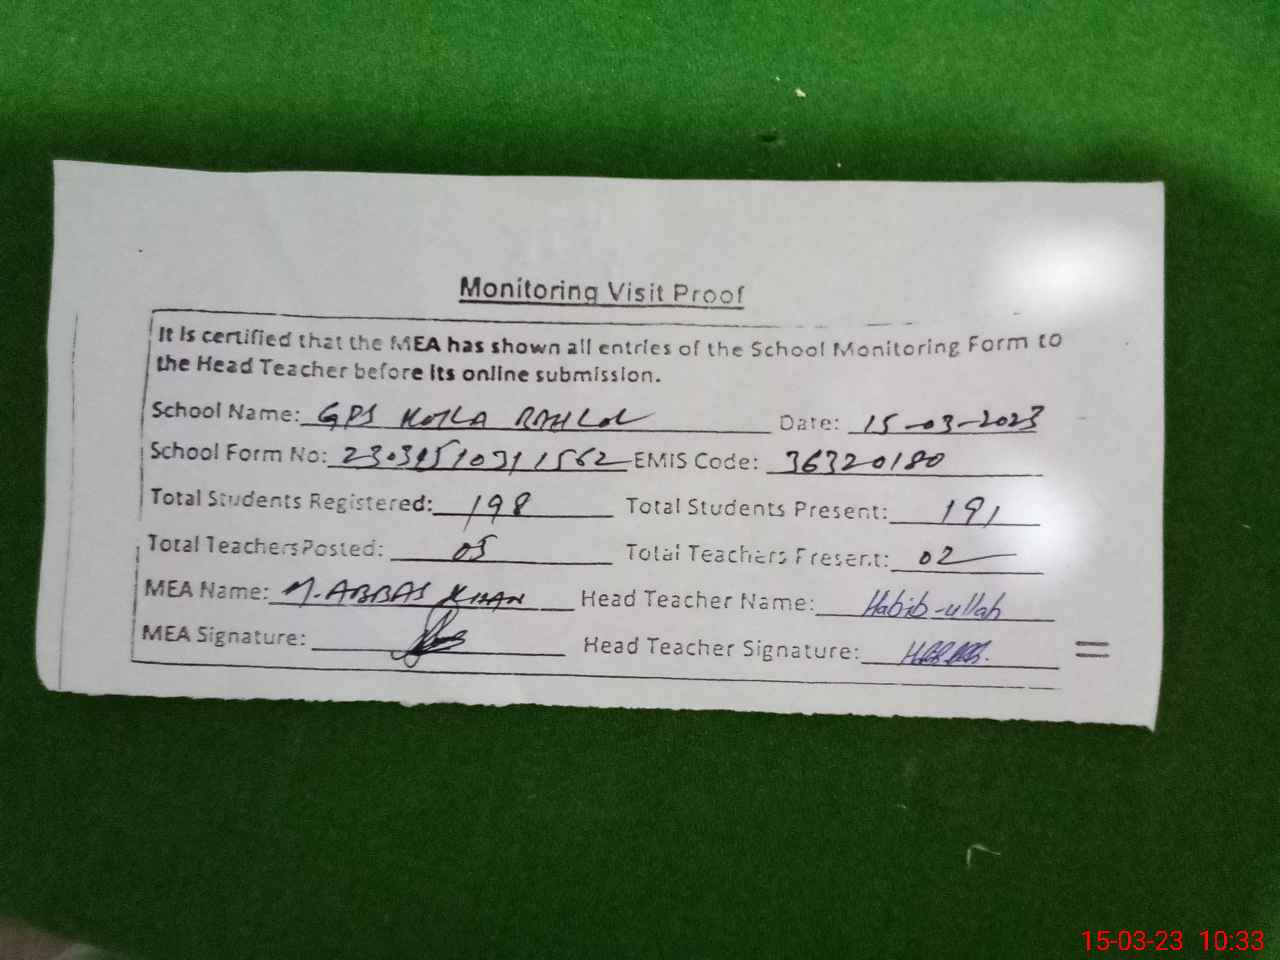 Monitoring Visit Proof
It is certified that the MEA has shown all entries of the School Monitoring Form to
the Head Teacher before its online submission.
School Name: GPS KOTLA RAHLOL Date: 15-03-2023
School Form No: EMIS Code: 36320180
Total Students Registered: 198 Total Students Present: 191
Total Teachers Posted: 05 Total Teachers Present: 02
MEA Name: M. ABBAS KHAN Head Teacher Name: Habib-ullah
MEA Signature: Head Teacher Signature:
15-03-23 10:33